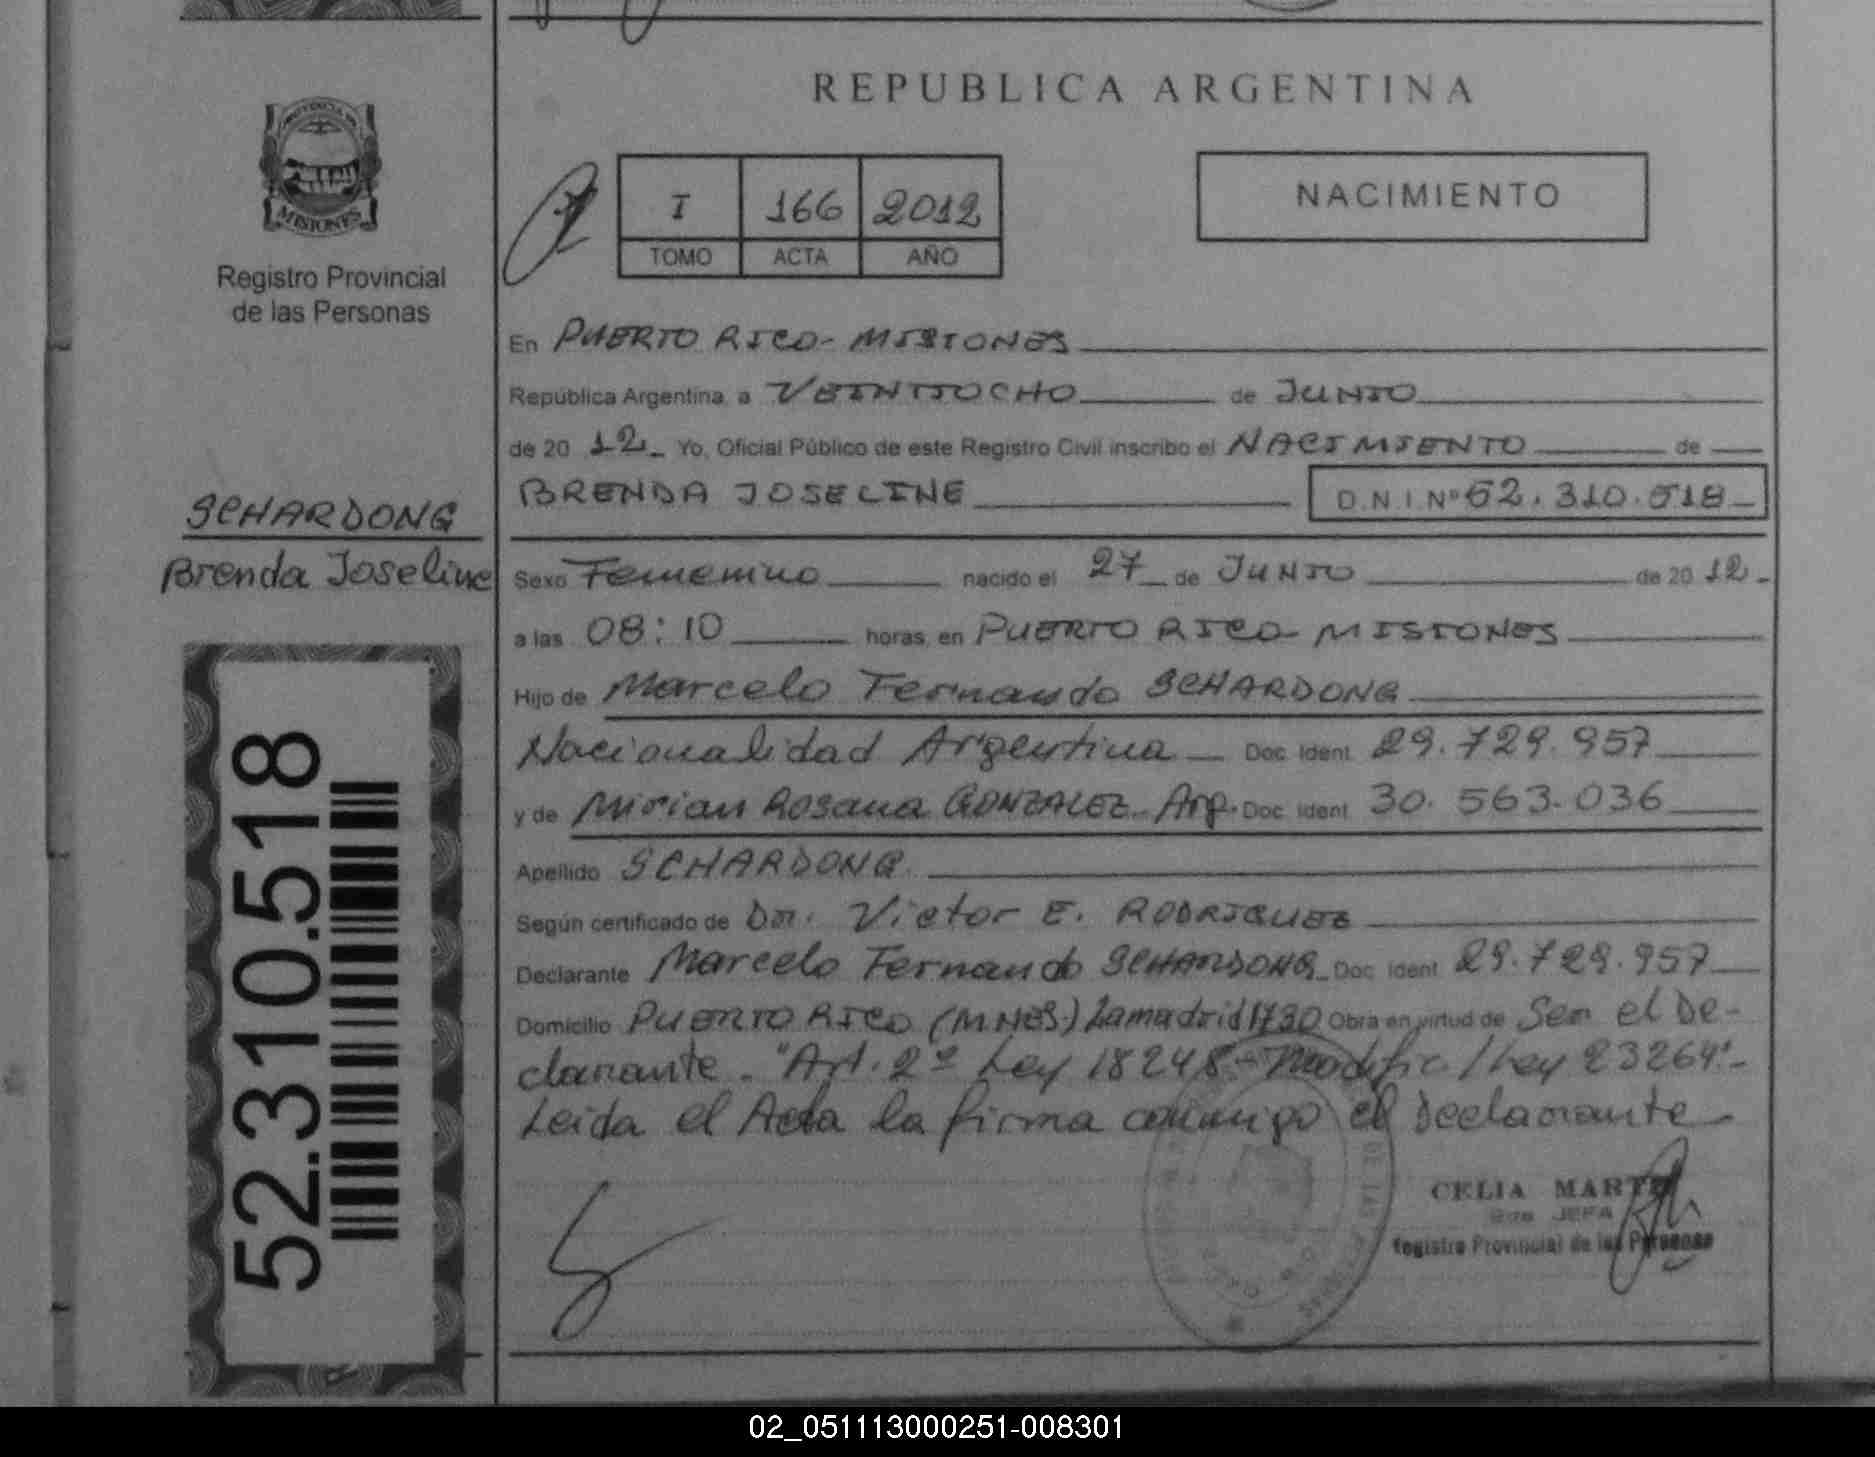 REPUBLICA ARGENTINA
PROVINCIA DE
MISIONES
Registro Provincial
de las Personas
I 166 2012
TOMO ACTA AÑO
NACIMIENTO
En PUERTO RICO - MISIONES
República Argentina, a VEINTIOCHO de JUNIO
de 20 12 Yo, Oficial Público de este Registro Civil inscribo el NACIMIENTO de
BRENDA JOSELINE D.N.I.Nº 52.310.518
SCHARDONG
Brenda Joseline
Sexo Femenino nacido el 27 de JUNIO de 20 12
a las 08:10 horas, en PUERTO RICO - MISIONES
Hijo de Marcelo Fernando SCHARDONG
Nacionalidad Argentina Doc. Ident. 29.729.957
y de Mirian Rosana GONZALEZ - Arg. Doc. Ident. 30.563.036
Apellido SCHARDONG
Según certificado de Dr. Victor E. RODRIGUEZ
Declarante Marcelo Fernando SCHARDONG Doc. Ident. 29.729.957
Domicilio PUERTO RICO (MNES.) Lamadrid 1730 Obra en virtud de Ser el De-
clarante. "Art. 2º Ley 18248 - Modific/Ley 23264".-
Leida el Acta la firma conmigo el Declarante
52.310.518
DE LAS PERSONAS
CELIA
JEFA
Registro Provincial de las Personas
02_051113000251-008301